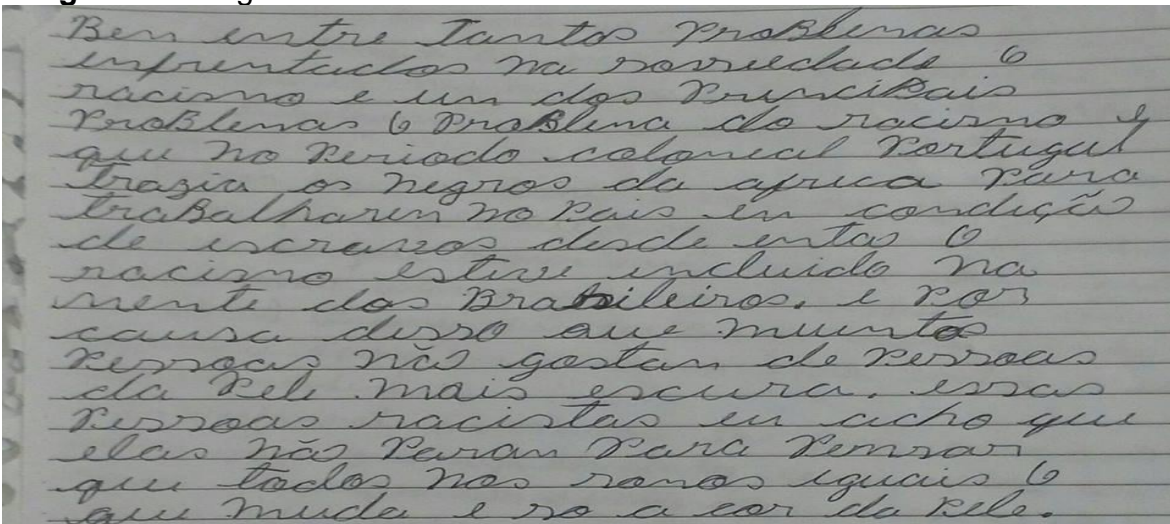 Ben entre Tantos ProBlemas
enfrentados na sossiedade O
racismo e un dos PrinciPais
ProBlemas O ProBlema do racismo é
que no Periodo colonial Portugal
Trazia os negros da africa Para
traBalharen no Pais en condição
de escravos desde entao O
racismo esteve incluido na
mente dos Brasileiros. e Por
causa disso que muintas
Pessoas não gostan de Pessoas
da Pele mais escura. essas
Pessoas racistas eu acho que
elas não Paran Para Pemsar
que todos nos somos iguais O
que muda e so a cor da Pele.